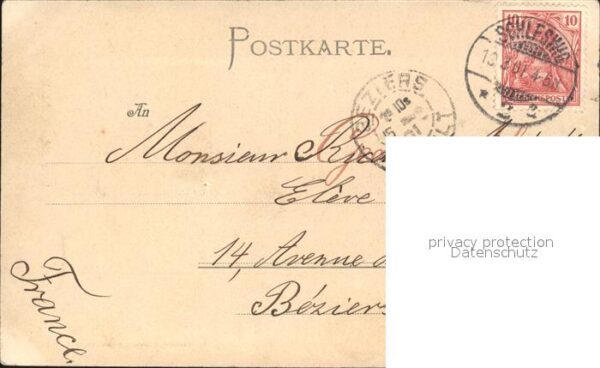 POSTKARTE.
10 10
SCHLESWIG
BÉZIERS
An
Monsieur
Elève
14, Avenue
Béziers
France.
privacy protection
Datenschutz